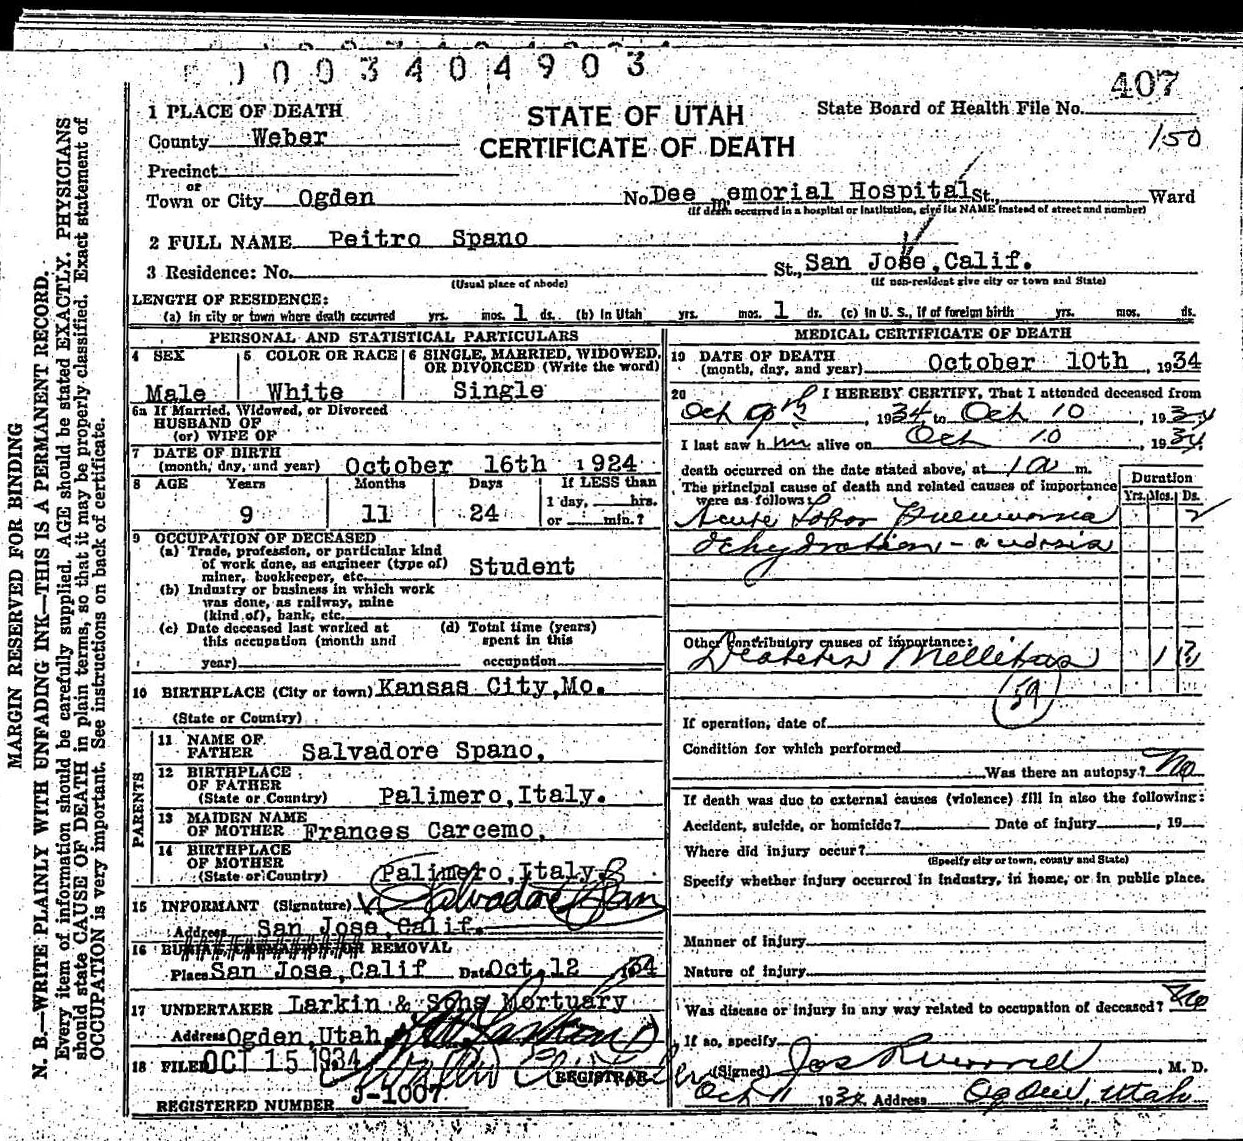 0003404903
407
1 PLACE OF DEATH
STATE OF UTAH
State Board of Health File No.
County Weber
CERTIFICATE OF DEATH
150
Precinct
or
Town or City Ogden No. Dee memorial Hospital St., Ward
(If death occurred in a hospital or institution, give its NAME instead of street and number)
2 FULL NAME Peitro Spano
3 Residence: No. St., San Jose, Calif.
(Usual place of abode) (If non-resident give city or town and State)
LENGTH OF RESIDENCE:
(a) In city or town where death occurred yrs. mos. 1 ds. (b) In Utah yrs. mos. 1 ds. (c) In U. S., if of foreign birth yrs. mos. ds.
PERSONAL AND STATISTICAL PARTICULARS
4 SEX 5 COLOR OR RACE 6 SINGLE, MARRIED, WIDOWED,
OR DIVORCED (Write the word)
Male White Single
6a If Married, Widowed, or Divorced
HUSBAND OF
(or) WIFE OF
7 DATE OF BIRTH
(month, day, and year) October 16th 1924
8 AGE Years Months Days If LESS than
1 day, hrs.
9 11 24 or min.?
9 OCCUPATION OF DECEASED
(a) Trade, profession, or particular kind
of work done, as engineer (type of) Student
miner, bookkeeper, etc.
(b) Industry or business in which work
was done, as railway, mine
(kind of), bank, etc.
(c) Date deceased last worked at (d) Total time (years)
this occupation (month and spent in this
year) occupation
10 BIRTHPLACE (City or town) Kansas City, Mo.
(State or Country)
PARENTS
11 NAME OF
FATHER Salvadore Spano,
12 BIRTHPLACE
OF FATHER
(State or Country) Palimero, Italy.
13 MAIDEN NAME
OF MOTHER Frances Carcemo,
14 BIRTHPLACE
OF MOTHER
(State or Country) Palimero, Italy
15 INFORMANT (Signature) x Salvadore
Address San Jose, Calif.
16 BURIAL, CREMATION, OR REMOVAL
Place San Jose, Calif Date Oct. 12 1934
17 UNDERTAKER Larkin & Sons Mortuary
Address Ogden, Utah
18 FILED OCT 15 1934
REGISTRAR
REGISTERED NUMBER J-1007
MEDICAL CERTIFICATE OF DEATH
19 DATE OF DEATH
(month, day, and year) October 10th, 1934
20 I HEREBY CERTIFY, That I attended deceased from
Oct 9th, 1934 to Oct 10, 1934
I last saw h im alive on Oct 10 1934,
death occurred on the date stated above, at 1 a m.
The principal cause of death and related causes of importance
were as follows: Duration
Yrs. Mos. Ds.
Acute Lobar Pneumonia 2
dehydration - acidosis
Other Contributory causes of importance:
Diabetes Mellitus 1
59
If operation, date of
Condition for which performed
Was there an autopsy? No
If death was due to external causes (violence) fill in also the following:
Accident, suicide, or homicide? Date of injury, 19
Where did injury occur?
(Specify city or town, county and State)
Specify whether injury occurred in industry, in home, or in public place.
Manner of Injury
Nature of Injury
Was disease or injury in any way related to occupation of deceased? No
If so, specify
(Signed) Jos R Morrell, M. D.
Oct 11 1934 Address Ogden, Utah
MARGIN RESERVED FOR BINDING
N. B.—WRITE PLAINLY WITH UNFADING INK—THIS IS A PERMANENT RECORD.
Every item of information should be carefully supplied. AGE should be stated EXACTLY. PHYSICIANS
should state CAUSE OF DEATH in plain terms, so that it may be properly classified. Exact statement of
OCCUPATION is very important. See instructions on back of certificate.